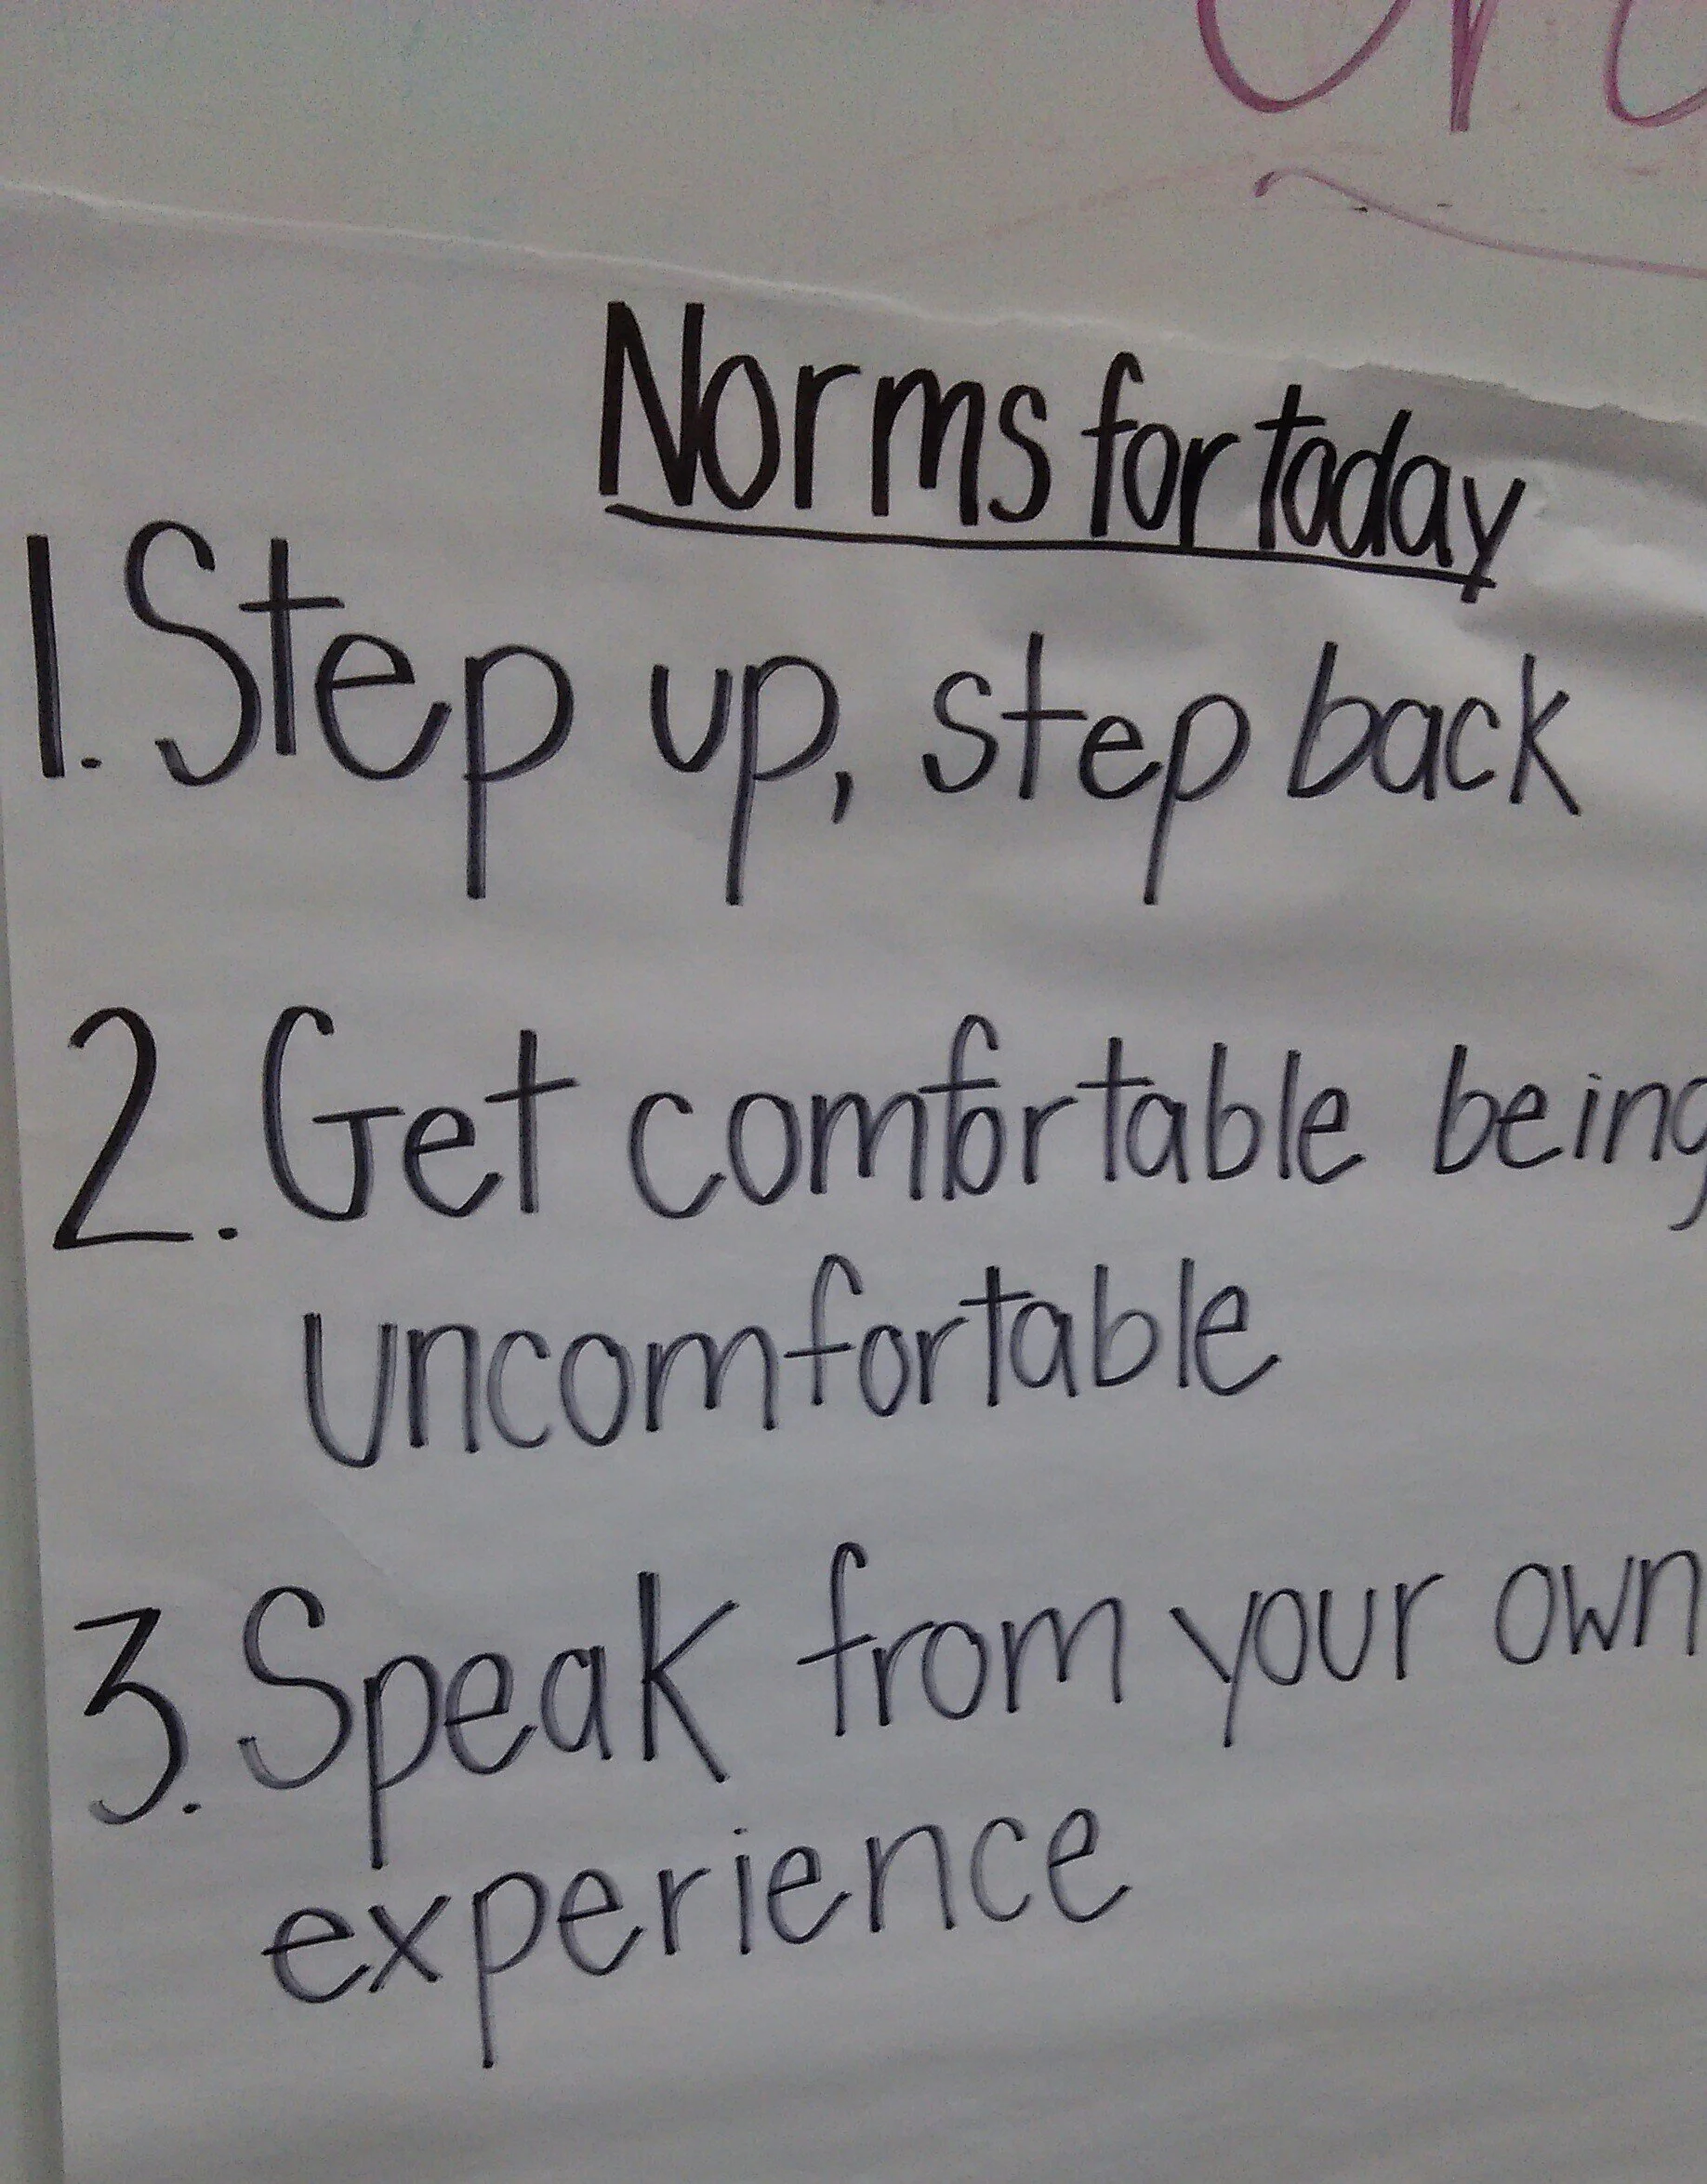 Norms for today
1. Step up, step back
2. Get comfortable being
uncomfortable
3. Speak from your own
experience